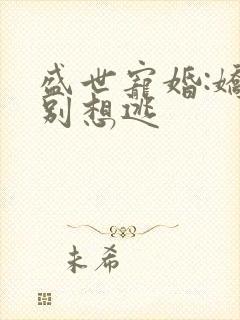 盛世寵婚:嬌
別想逃
未希